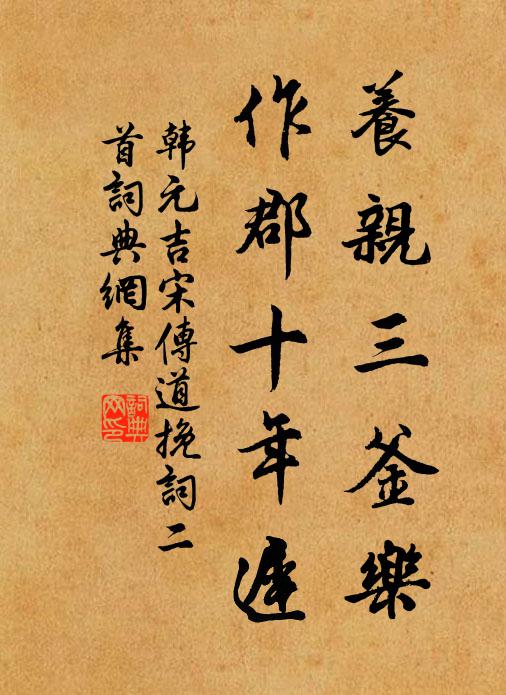 養親三釜樂
作郡十年遲
韩元吉宋傅道挽詞二
首詞典網集
詞典
网印